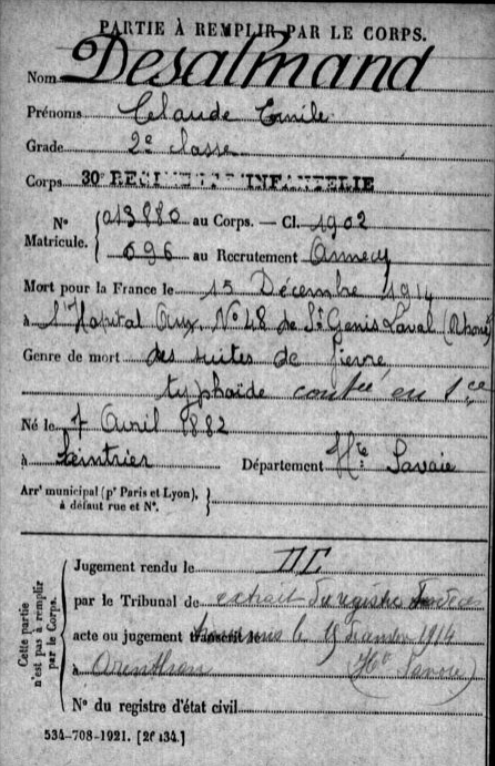 PARTIE À REMPLIR PAR LE CORPS.
Nom Desalmand
Prénoms Claude Emile
Grade 2e classe
Corps 30e REGIMENT D'INFANTERIE
N° Matricule. 013880 au Corps. — Cl. 1902
696 au Recrutement Annecy
Mort pour la France le 15 Décembre 1914
à l'Hopital Aux. N° 48 de St Genis Laval (Rhone)
Genre de mort des suites de fievre
typhoïde contée en sce
Né le 7 Avril 1882
à Département Hte Savoie
Arrt municipal (pr Paris et Lyon), à défaut rue et N°.
Cette partie n'est pas à remplir par le Corps.
Jugement rendu le
par le Tribunal de extrait du registre de décès
acte ou jugement transmis le 15 décembre 1914
à Arenthon (Hte Savoie)
N° du registre d'état civil
534-708-1921. [26434.]